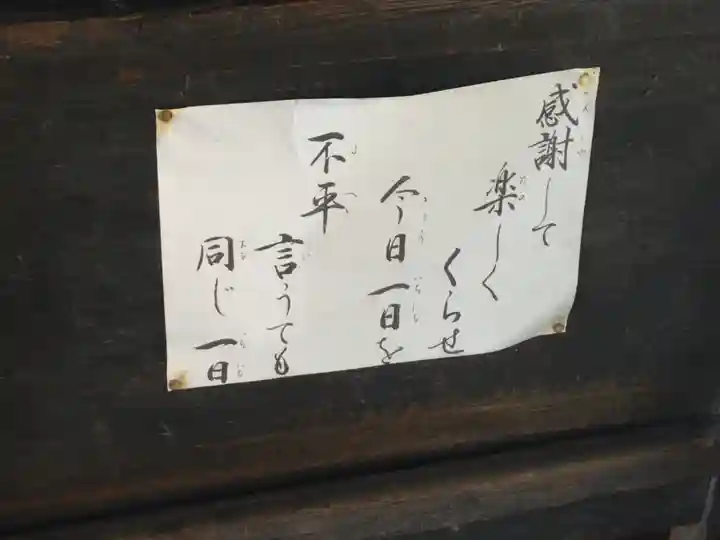 感謝して
楽しく
くらせ
今日一日を
不平
言うても
同じ一日